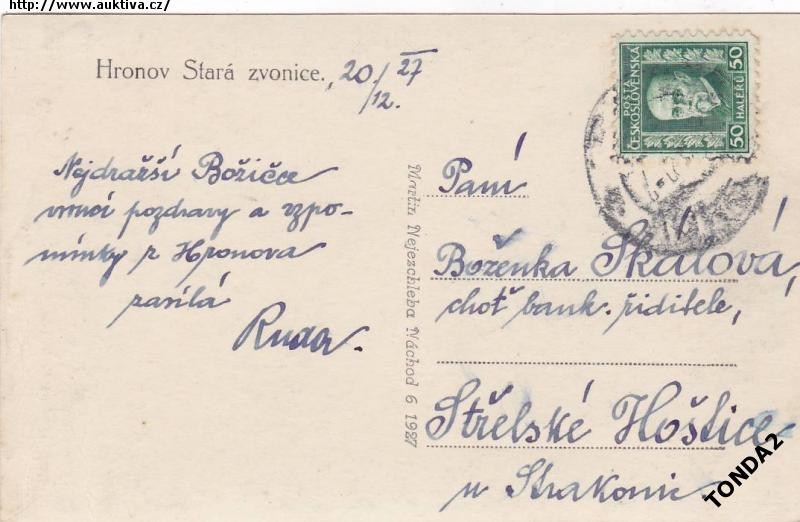 http://www.auktiva.cz/
Hronov Stará zvonice. 20/12. 27
Nejdražší Božičce
vroucí pozdravy a vzpo-
mínky z Hronova
zasílá
Ruda.
Martin Nejezchleba Náchod 6 1927
POŠTA
ČESKOSLOVENSKÁ
50 HALÉŘŮ 50
Paní
Boženka Skálová,
choť bank. řiditele,
Střelské Hoštice
u Strakonic
TONDA2